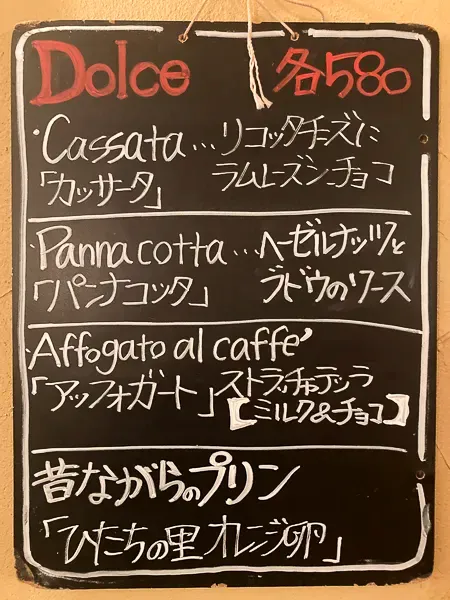 Dolce 各580
・Cassata...リコッタチーズに
「カッサータ」 ラムレーズン、チョコ
・Panna cotta...ヘーゼルナッツと
「パンナコッタ」 ブドウのソース
Affogato al caffe'
「アッフォガート」ストラッチャテッラ
【ミルク&チョコ】
昔ながらのプリン
「ひたちの里 オレンジ卵」